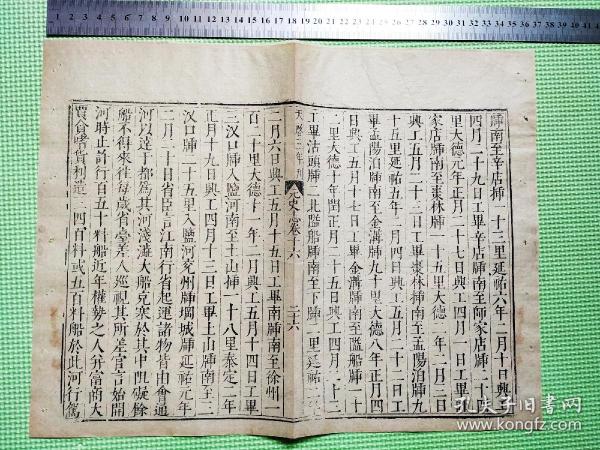 牐南至辛店牐二十三里延祐六年二月十日興工
四月二十九日工畢辛店牐南至師家店牐二十四
里大德元年正月二十七日興工四月一日工畢師
家店牐南至棗林牐一十五里大德二年二月三日
興工五月二十三日工畢棗林牐南至孟陽泊牐九
十五里延祐五年二月四日興工五月二十二日工
畢孟陽泊牐南至金溝牐九十里大德八年正月四
日興工五月十七日工畢金溝牐南至隘船牐一十
二里大德十年閏正月二十五日興工四月二十三
工畢沽頭牐二北隘船牐南至下牐二里延祐二年
二月六日興工五月十五日工畢南牐南至徐州一
百二十里大德十一年二月興工五月十四日工畢
三汊口牐入鹽河南至土山牐一十八里泰定二年
正月十九日興工四月十三日工畢土山牐南至三
汊口牐二十五里入鹽河兗州牐堽城牐延祐元年
二月二十日省臣言江南行省起運諸物皆由會通
河以達于都為其河淺澁大船充塞於其中阻礙餘
船不得來往每歲省臺差人巡視其所差官言始開
河時止許行百五十料船近年權勢之人并富商大
賈貪嗜貨利造三四百料或五百料船於此河行駕
天啓三年刊
元史卷六十六
二十六
孔夫子旧书网
www.kongfz.com